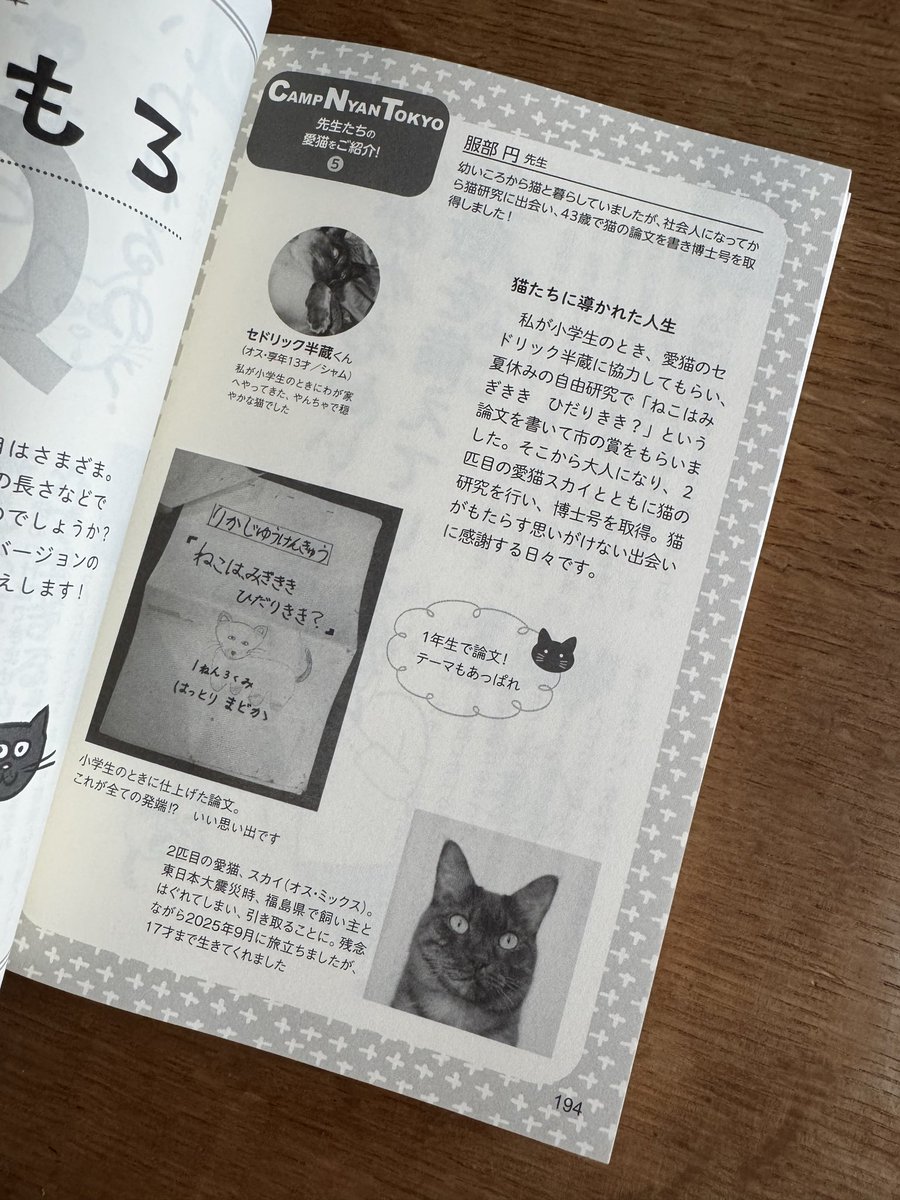 もろ
月はさまざま。
の長さなどで
のでしょうか?
バージョンの
えします!
CAMP NYAN TOKYO
先生たちの
愛猫をご紹介!
5
服部 円 先生
幼いころから猫と暮らしていましたが、社会人になってか
ら猫研究に出会い、43歳で猫の論文を書き博士号を取
得しました!
セドリック半蔵くん
(オス・享年13才/シャム)
私が小学生のときにわが家
へやってきた、やんちゃで穏
やかな猫でした
猫たちに導かれた人生
私が小学生のとき、愛猫のセ
ドリック半蔵に協力してもらい、
夏休みの自由研究で「ねこはみ
ぎきき ひだりきき?」という
論文を書いて市の賞をもらいま
した。そこから大人になり、2
匹目の愛猫スカイとともに猫の
研究を行い、博士号を取得。猫
がもたらす思いがけない出会い
に感謝する日々です。
りかじゆうけんきゅう
「ねこはみぎきき
ひだりきき?」
1ねん3くみ
はっとり まどか
1年生で論文!
テーマもあっぱれ
小学生のときに仕上げた論文。
これが全ての発端!? いい思い出です
2匹目の愛猫、スカイ(オス・ミックス)。
東日本大震災時、福島県で飼い主と
はぐれてしまい、引き取ることに。残念
ながら2025年9月に旅立ちましたが、
17才まで生きてくれました
194